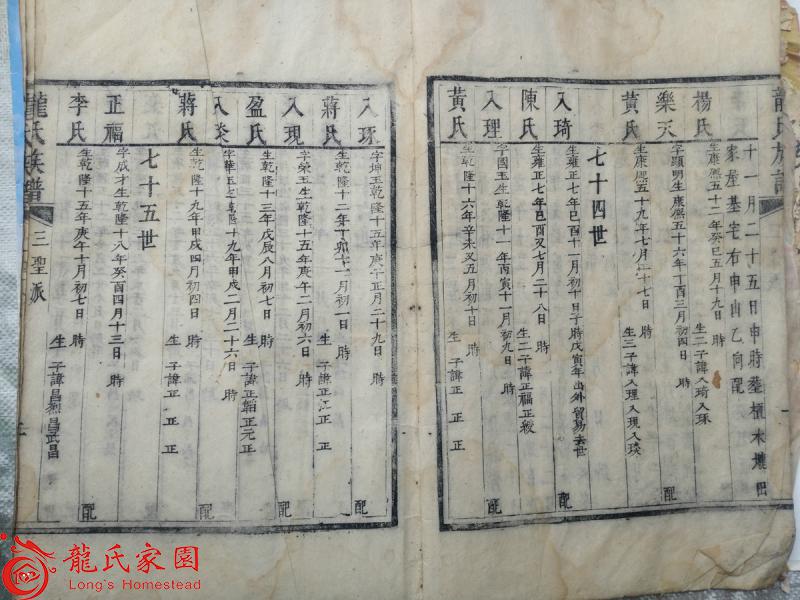 龍氏族譜
十一月二十五日申時塟樻木塘田
家屋基宅右申山乙向配
楊氏 生康熙五十二年癸巳五月十九日 時 生二子諱入琦入琢
樂天 字顯明生康熙五十六年丁酉三月初四日 時 配
黃氏 生康熙五十九年七月二十七日 時 生三子諱入理入現入琰
七十四世
入琦 生雍正七年己酉十一月初十日子時戊寅年出外貿易去世 配
陳氏 生雍正七年己酉又七月二十八日 時 生二子諱正福正綬
入理 字國玉生乾隆十一年丙寅十一月初九日 時 配
黃氏 生乾隆十六年辛未又五月初十日 時 生 子諱正 正 正
入琢 字坤玉生乾隆十五年庚午正月二十九日 時 配
蔣氏 生乾隆十二年丁卯十一月初一日 時 生 子諱正江正 正
入現 字榮玉生乾隆十五年庚午二月初六日 時 配
盈氏 生乾隆十三年戊辰八月初七日 時 生 子諱正韜正元正
入琰 字華玉生乾隆十九年甲戌二月二十六日 時 配
蔣氏 生乾隆十九年甲戌四月初四日 時 生 子諱正 正 正
七十五世
正福 字成才生乾隆十八年癸酉四月十三日 時 配
李氏 生乾隆十五年庚午十月初七日 時 生 子諱昌 昌武昌
龍氏族譜 三聖派
龍氏家園
Long's Homestead